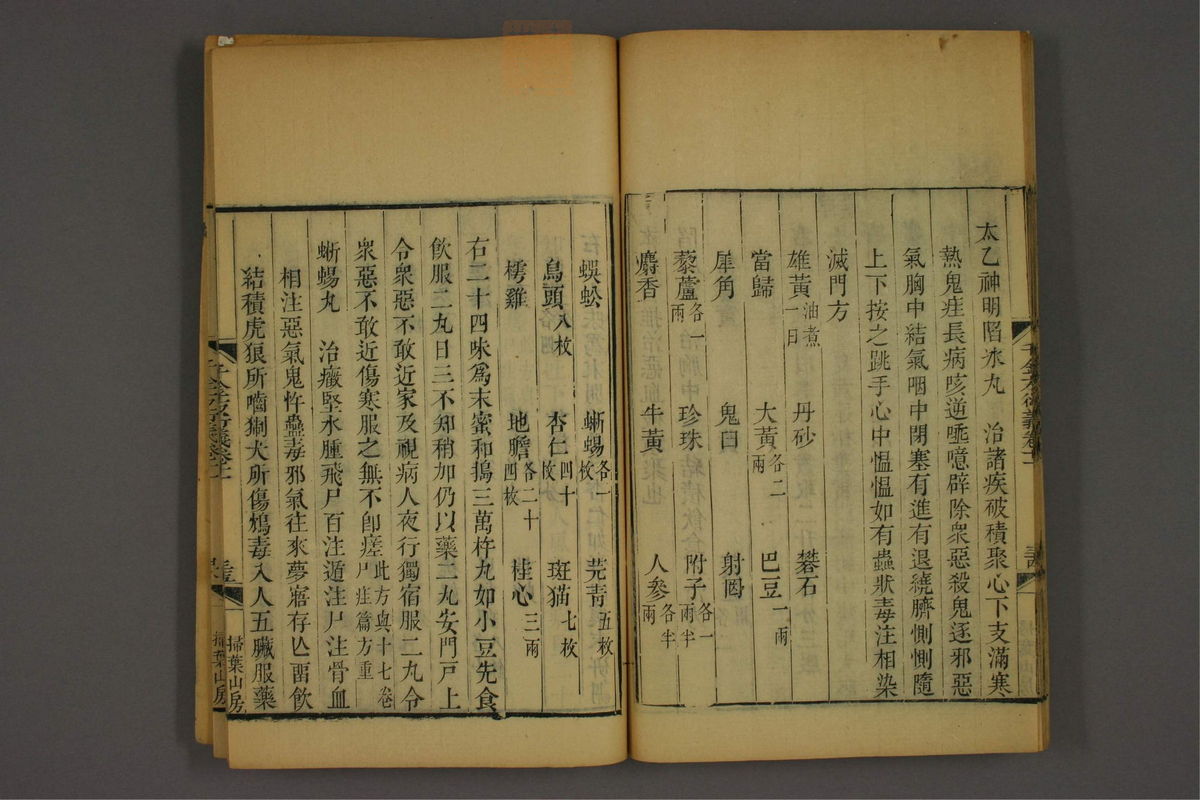 太乙神明陷氷丸　治諸疾破積聚心下支滿寒
熱鬼疰長病咳逆唾噫辟除衆惡殺鬼逐邪惡
氣胸中結氣咽中閉塞有進有退繞臍惻惻隨
上下按之跳手心中愠愠如有蟲狀毒注相染
滅門方
雄黃油煮一日　丹砂　礬石
當歸　大黃各二兩　巴豆一兩
犀角　鬼臼　射罔
藜蘆各一兩　珍珠　附子各一兩半
麝香　牛黃　人參各半兩
蜈蚣　蜥蜴各一枚　芫青五枚
烏頭八枚　杏仁四十枚　斑猫七枚
樗雞　地膽各二十四枚　桂心三兩
右二十四味爲末蜜和搗三萬杵丸如小豆先食
飲服二丸日三不知稍加仍以藥二丸安門戸上
令衆惡不敢近家及視病人夜行獨宿服二丸令
衆惡不敢近傷寒服之無不卽瘥此方與十七卷尸疰篇方重
蜥蜴丸　治癥堅水腫飛尸百注遁注尸注骨血
相注惡氣鬼忤蠱毒邪氣往來夢寤存亾畱飲
結積虎狼所嚙猘犬所傷鴆毒入人五臟服藥
掃葉山房